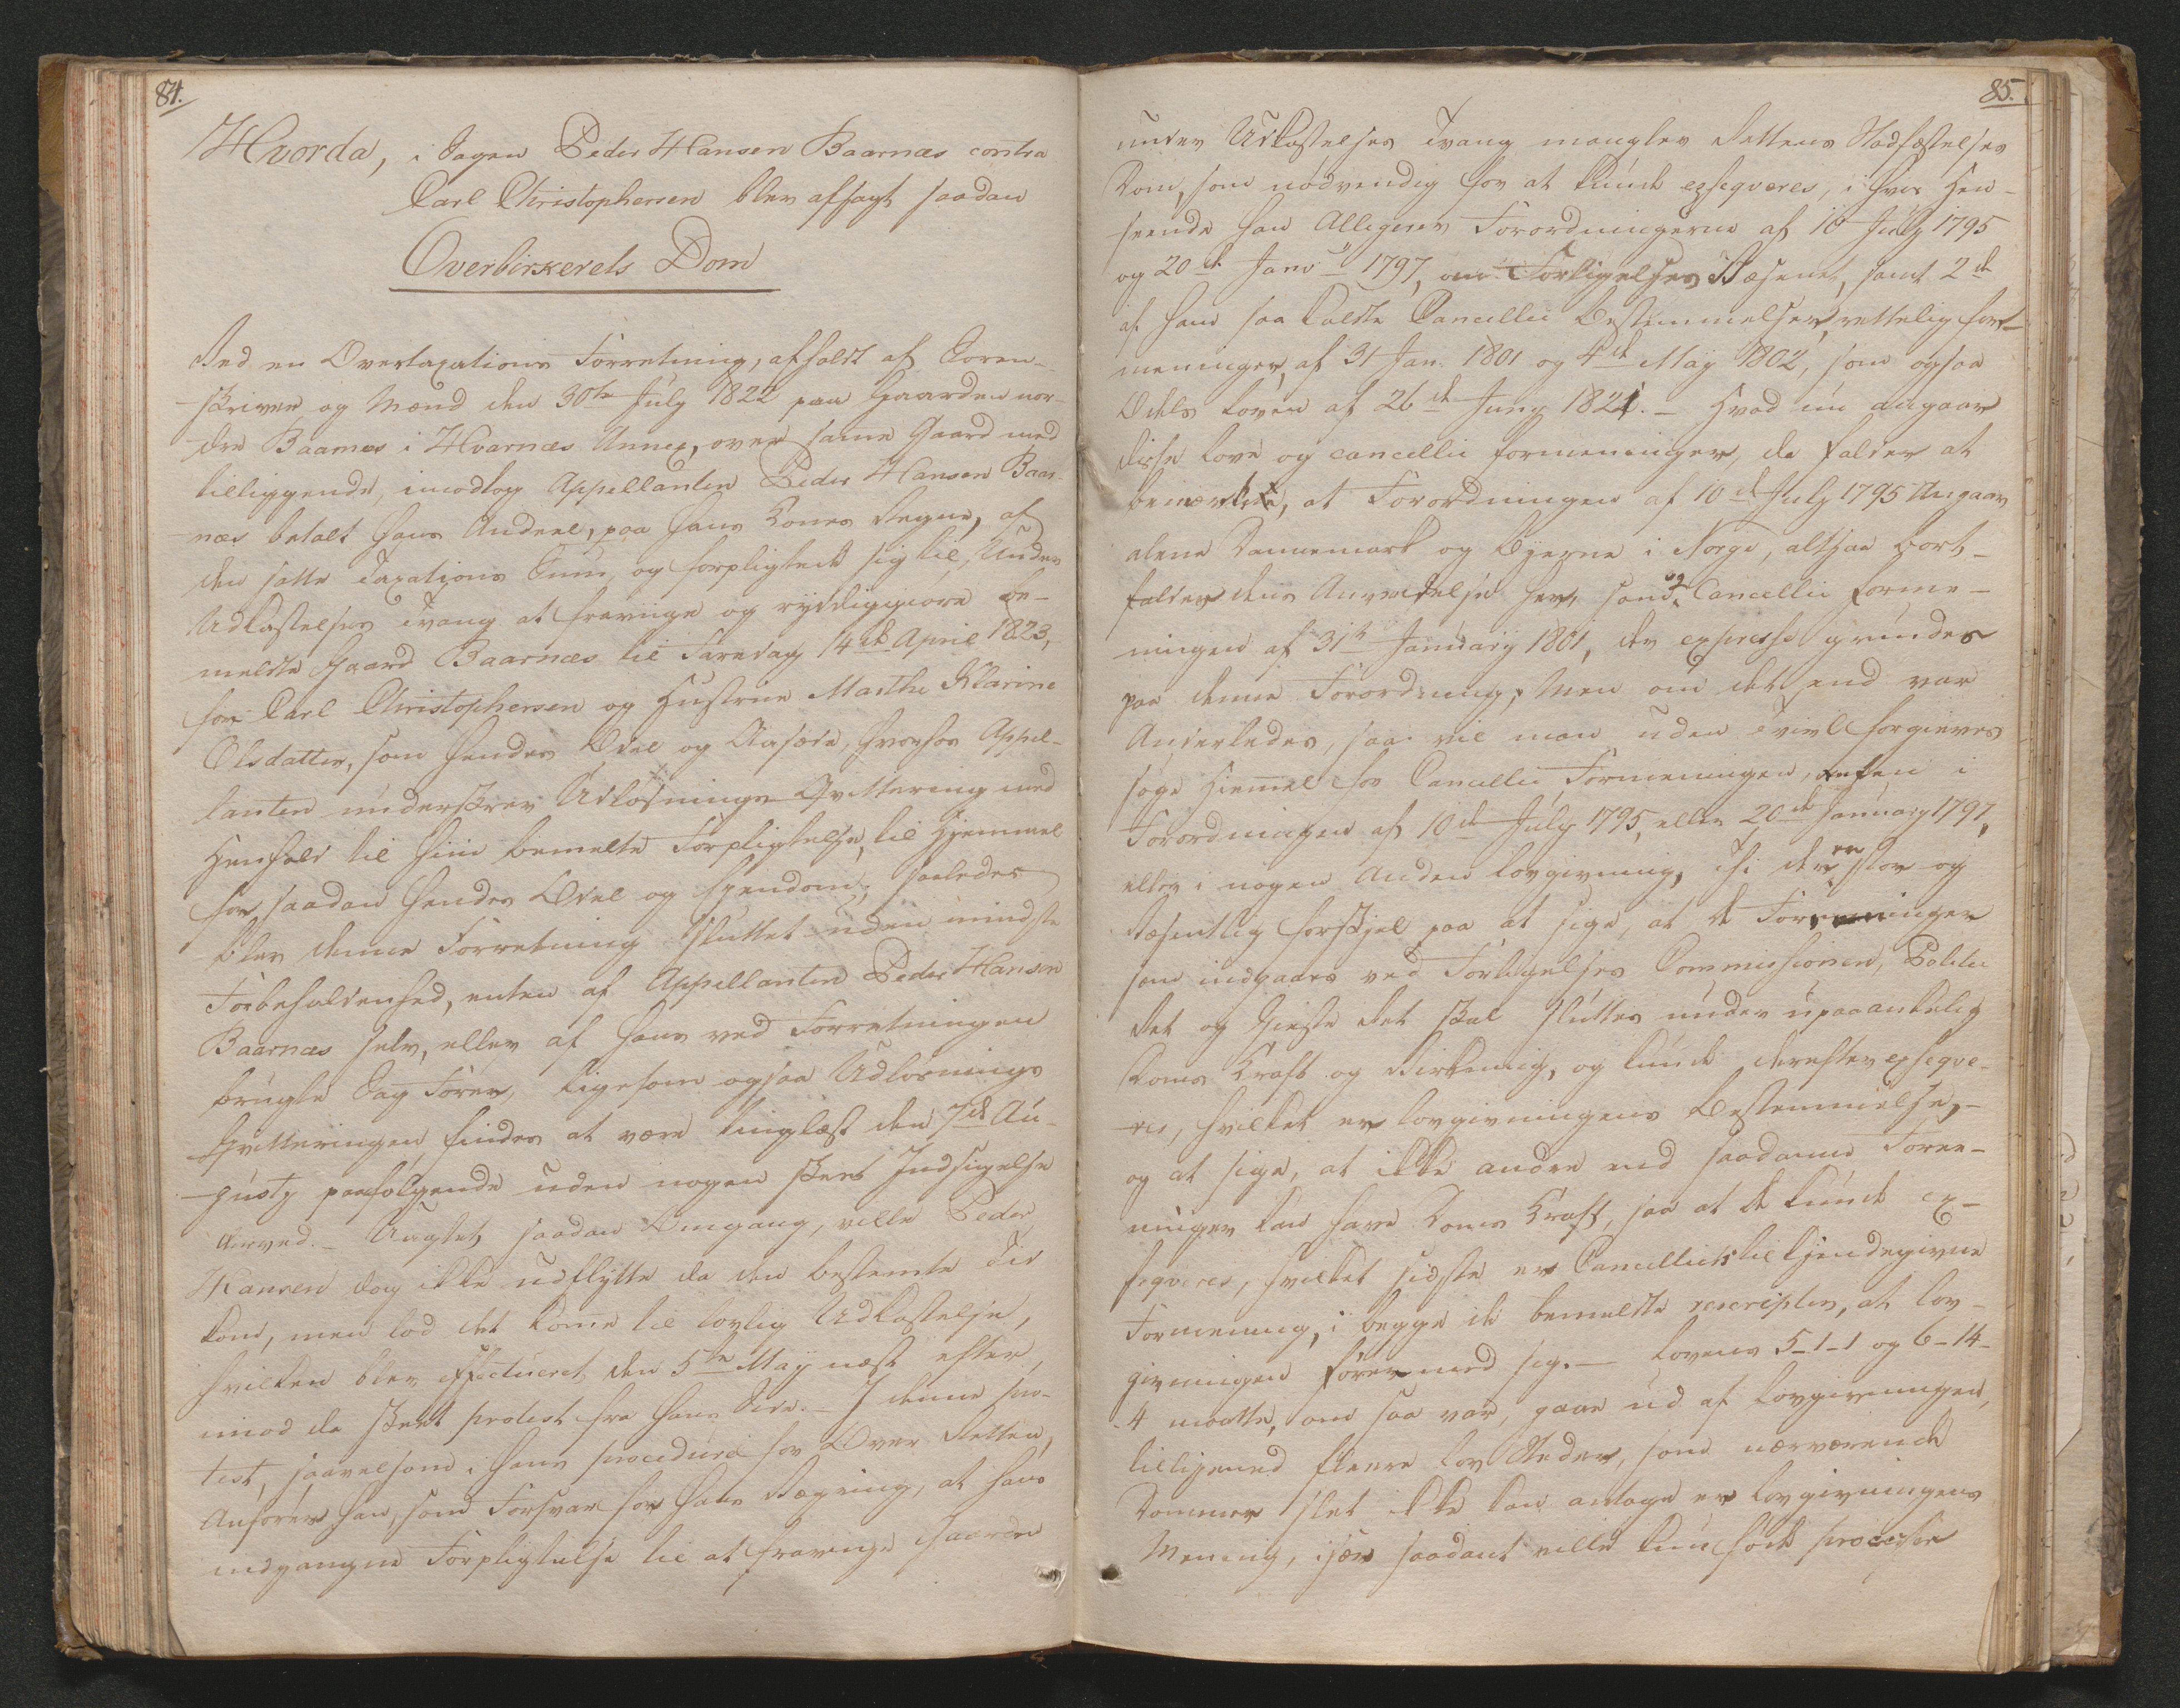 84.
Hvorda, i Sagen Peder Hansen Baarnæs contra
Carl Christophersen blev afsagt saadan
Overbirkerets Dom
Ved en Overtaxations Forretning, afholdt af Soren-
skriver og Mænd den 30te July 1822 paa Gaarden nor-
dre Baarnæs i Hvarnæs Annex, over samme Gaard med
tilliggende, imodtog Appellanten Peder Hansen Baar-
næs betalt hans Andeel, paa hans Kones Vegne, af
den satte Taxations Sum, og forpligtede sig til, Under
Udkastelses Tvang at fravige og ryddiggiøre be-
meldte Gaard Baarnæs til Faredag 14de April 1823,
for Carl Christophersen og Hustrue Marthe Karine
Olsdatter, som hendes Odel og Aasæde, hvorfor Appel-
lanten underskrev Udløsnings Qvittering med
Henhold til hiin bemelte Forpligtelse, til Hjemmel
for saadan hendes Odel og Ejendom; saaledes
blev denne Forretning sluttet uden mindste
Forbeholdenhed, enten af Appellanten Peder Hansen
Baarnæs selv, eller af hans ved Forretningen
brugte Sag Fører, ligesom ogsaa Udløsnings
Qvitteringen findes at være tinglæst den 7de Au-
gusty paafølgende uden nogen skeet Indsigelse
derved. - Uagtet saadan Omgang, ville Peder
Hansen dog ikke udflytte da den bestemte Tid
kom, men lod det komme til lovlig Udkastelse,
hvilken blev effectueret den 5te May næst efter,
imod da skeet protest fra hans Side. - I denne pro-
test, saavelsom i hans procedure for Over Retten,
Anfører han, som Forsvar for hans Vægring, at hans
indgangne Forpligtelse til at fravige Gaarden
85.
under Udkastelses Tvang mangler Rettens Stadfæstelses
Dom, som nødvendig for at kunde exseqveres, i hvis Hen-
seende han Alligerer Forordningerne af 10 July 1795
og 20de Janr 1797, om Forligelses Væsenet, samt 2de
af ham saa kaldte Cancellie Bestemmelser, rettelig for-
meninger, af 31 Jan. 1801 og 4de May 1802, som ogsaa
Odels Loven af 26de Juny 1821. - Hvad nu angaaer
disse Love og cancellie formeninger, da falder at
bemærke, at Forordningen af 10de July 1795 Angaaer
alene Dannemark og Byerne i Norge, altsaa bort-
falder dens Anvendelse her, samt og Cancellie forme-
ningen af 31te January 1801, der expresse grundes
paa denne Forordning; Men om det end var
Anderledes, saa vil man uden Tvivl forgieves
søge Hiemmel for Cancellie Formeningen, enten i
Forordningen af 10de July 1795, eller 20de January 1797,
eller i nogen Anden Lovgivning, thi der er stor og
væsentlig forskjel paa at sige, at de Foreninger
som indgaaes ved Forligelses Commissionen, Politie
Ret og Gieste Ret skal sluttes under upaaankelig
Doms Kraft og Virkning, og kunde derefter exseqve-
res, hvilket er Lovgivningens Bestemmelse, -
og at sige, at ikke andre end saadanne Foree-
ninger kan have Doms Kraft, saa at de kunde ex-
seqveres, hvilket sidste er Cancelliets tilkjendegivne
Formening, i begge de bemeldte rescripter, at Lov-
givningen fører med sig. - Lovens 5-1-1 og 6-14-
4 maatte, om saa var, gaae ud af Lovgivningen,
tilligemed fleere Lov Steder, som nærværende
Dommer slet ikke kan antage er Lovgivningens
Mening, især saadant ville kun føde processer